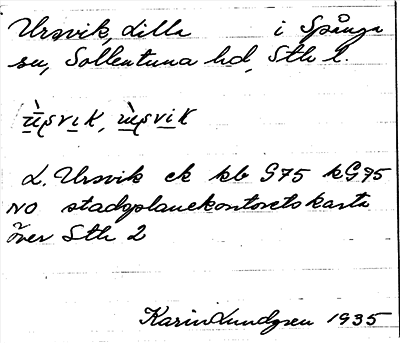 Ursvik, Lilla i Spånga
sn, Sollentuna hd, Sth l.
ù̱ʂvi̱k, ùʂvi̱k
L. Ursvik ek kb G75 kG95
NO stadsplanekontorets karta
över Sth 2
Karin Lundgren 1935